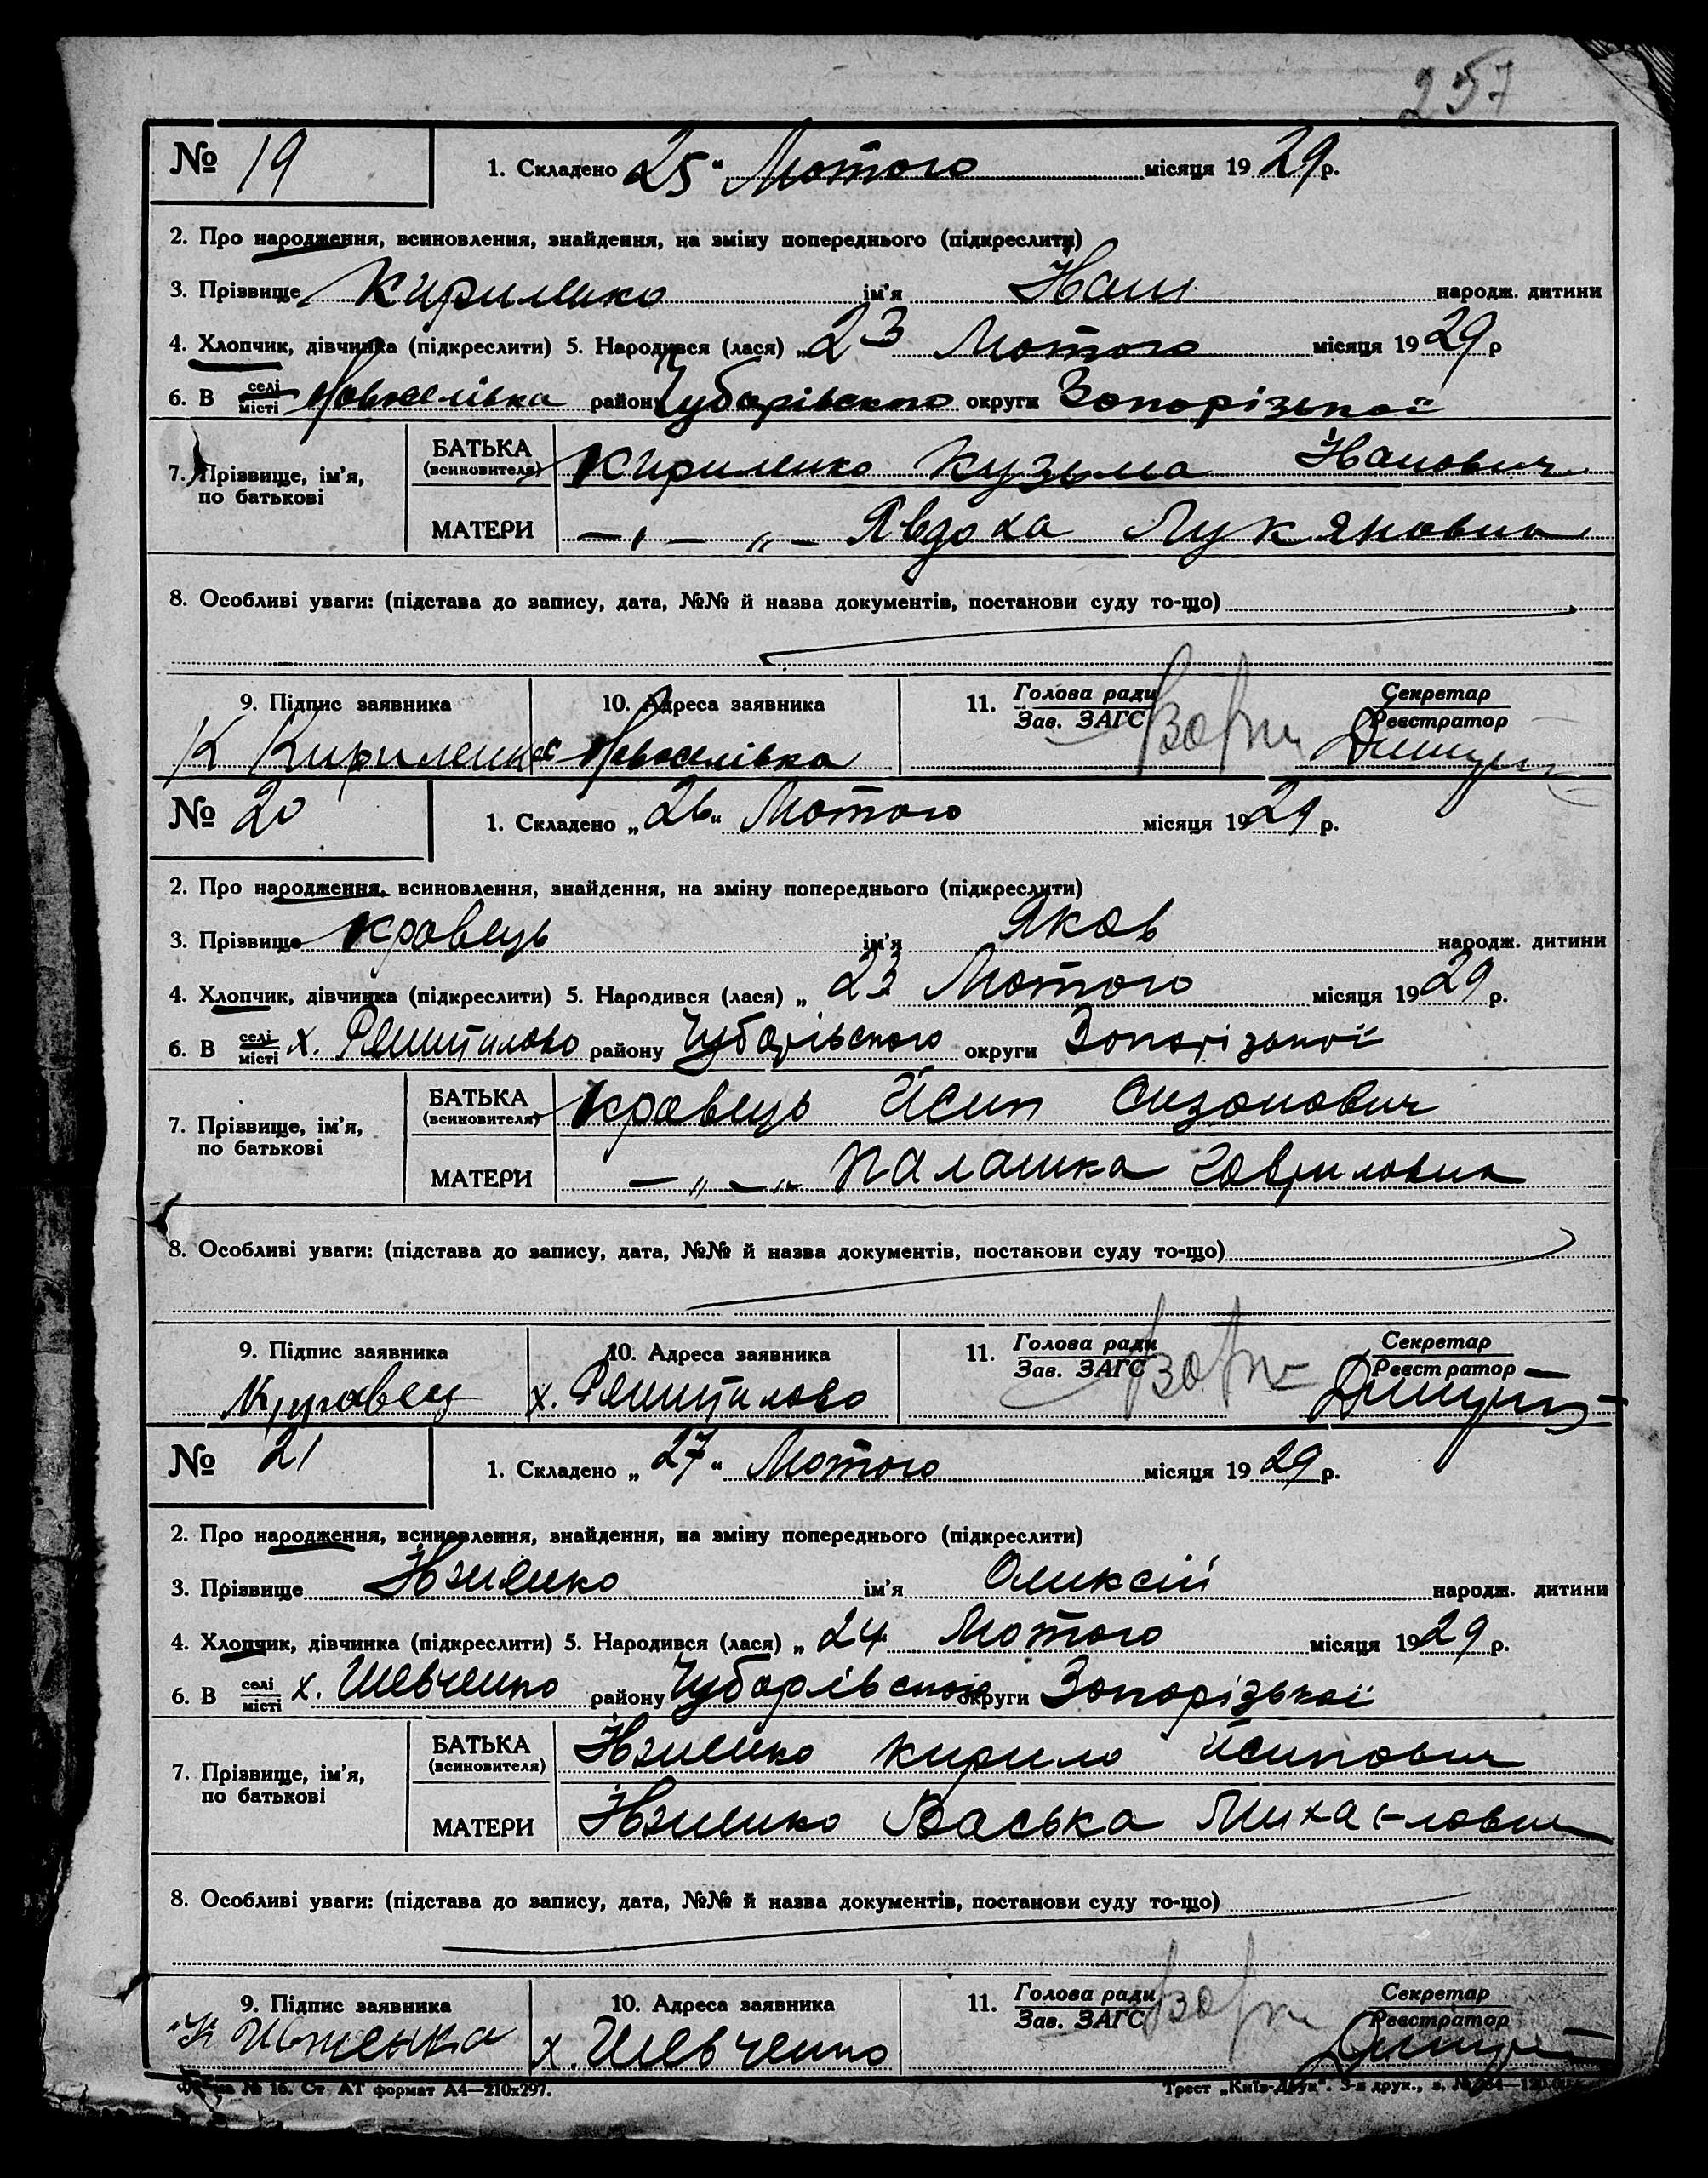 257
№ 19
1. Складено 25 " Лютого місяця 1929 р.
2. Про народження, всиновлення, знайдення, на зміну попереднього (підкреслити)
3. Прізвище Кириленко ім'я Іван народж. дитини
4. Хлопчик, дівчинка (підкреслити) 5. Народився (лася) „ 23 Лютого місяця 1929 р
6. В селі місті Новоселівка району Чубарівського округи Запорізької
7. Прізвище, ім'я, по батькові
БАТЬКА (всиновителя) Кириленко Кузьма Іванович
МАТЕРИ — „ — „ — Явдоха Лукяновна
8. Особливі уваги: (підстава до запису, дата, №№ й назва документів, постанови суду то-що)
9. Підпис заявника 10. Адреса заявника 11. Голова ради Зав. ЗАГС Секретар Реєстратор
К Кириленко с Новоселівка
№ 20
1. Складено „ 26 " Лютого місяця 1929 р.
2. Про народження, всиновлення, знайдення, на зміну попереднього (підкреслити)
3. Прізвище Кравець ім'я Яков народж. дитини
4. Хлопчик, дівчинка (підкреслити) 5. Народився (лася) „ 23 Лютого місяця 1929 р.
6. В селі місті х. району Чубарівського округи Запорізької
7. Прізвище, ім'я, по батькові
БАТЬКА (всиновителя) Кравець Йсип Сизонович
МАТЕРИ — „ — „ Палашка Гавриловна
8. Особливі уваги: (підстава до запису, дата, №№ й назва документів, постанови суду то-що)
9. Підпис заявника 10. Адреса заявника 11. Голова ради Зав. ЗАГС Секретар Реєстратор
Кравец х.
№ 21
1. Складено „ 27 " Лютого місяця 1929 р.
2. Про народження, всиновлення, знайдення, на зміну попереднього (підкреслити)
3. Прізвище Їженко ім'я Олексій народж. дитини
4. Хлопчик, дівчинка (підкреслити) 5. Народився (лася) „ 24 Лютого місяця 1929 р.
6. В селі місті х. Шевченко району Чубарівського округи Запорізької
7. Прізвище, ім'я, по батькові
БАТЬКА (всиновителя) Їженко Кирило Йсипович
МАТЕРИ Їженко Васька Михайловна
8. Особливі уваги: (підстава до запису, дата, №№ й назва документів, постанови суду то-що)
9. Підпис заявника 10. Адреса заявника 11. Голова ради Зав. ЗАГС Секретар Реєстратор
х. Шевченко
Форма № 16. Ст. АТ формат А4—210х297. Трест „Київ-Друк". 3-я друк., з.